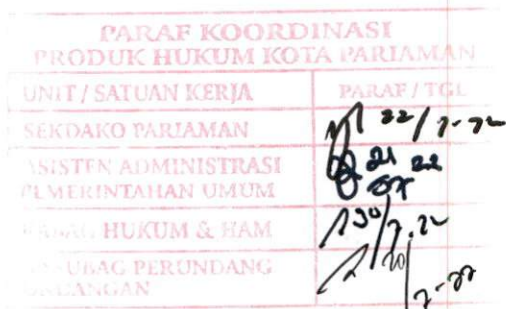 PARAF KOORDINASI
PRODUK HUKUM KOTA PARIAMAN
UNIT / SATUAN KERJA PARAF / TGL
SEKDAKO PARIAMAN 22/7-22
ASISTEN ADMINISTRASI
PEMERINTAHAN UMUM 21 22
HUKUM & HAM
UBAG PERUNDANG
UNDANGAN